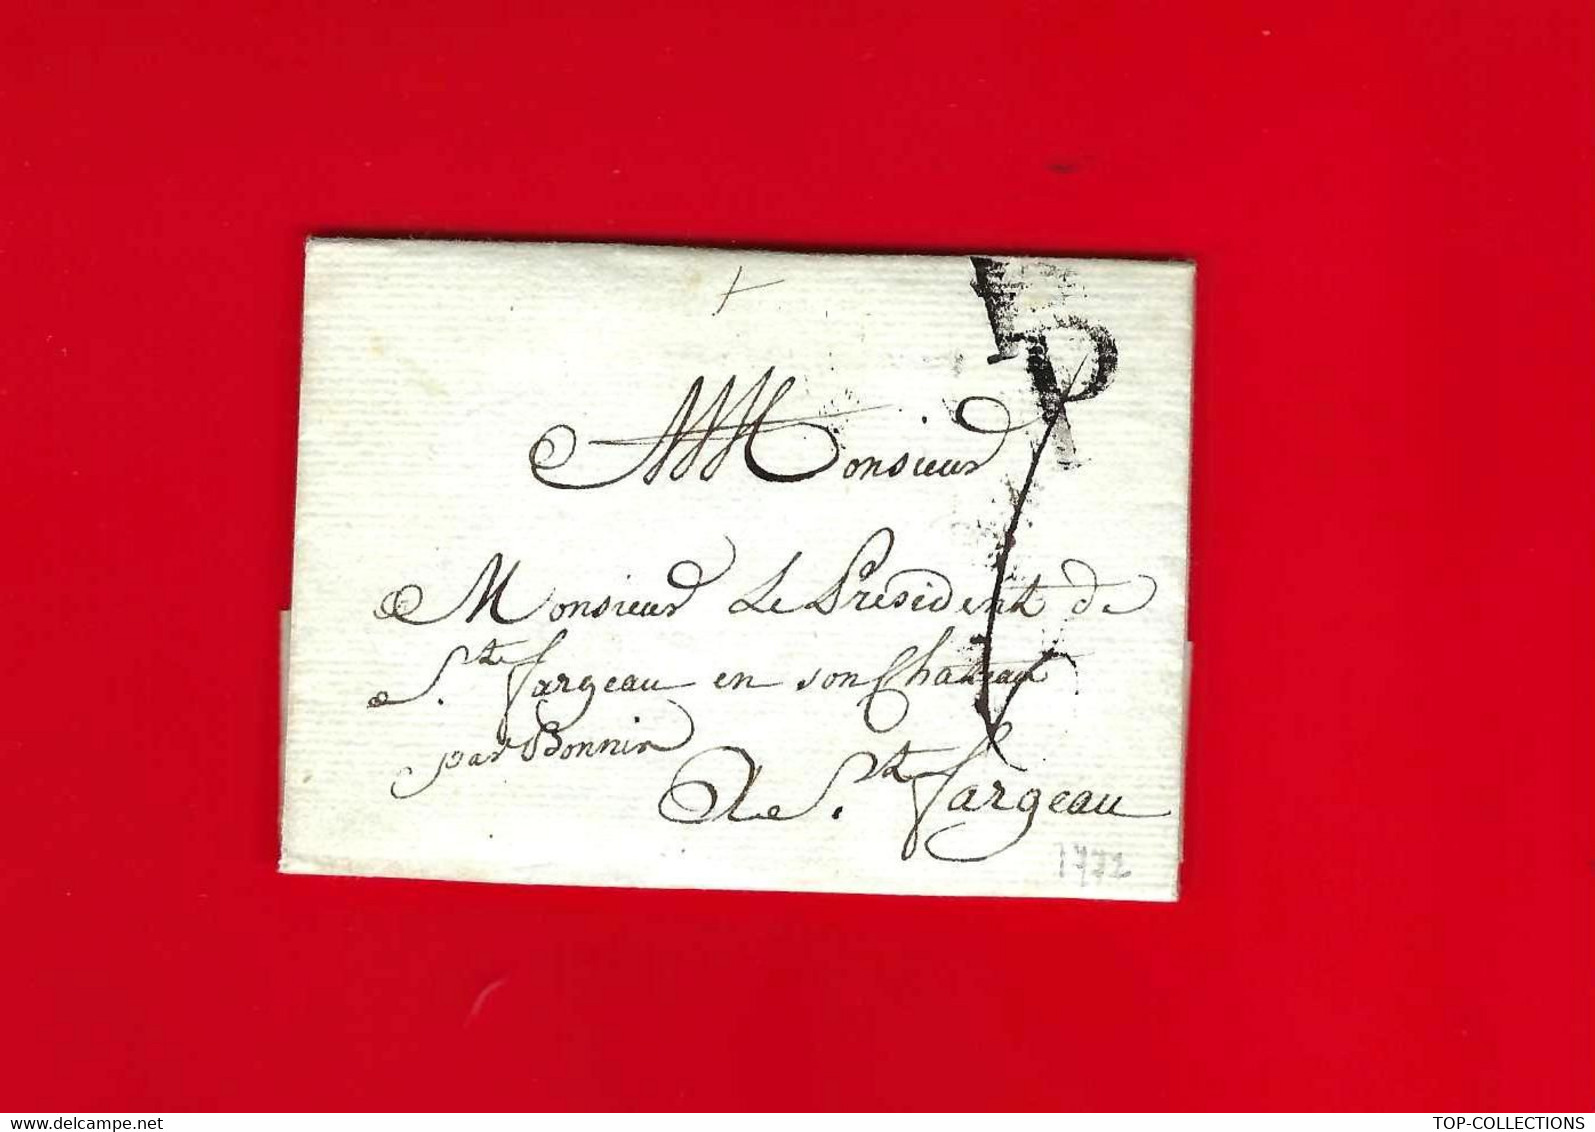 P
Monsieur
Monsieur Le President de
St. fargeau en son Chateau
par Bonnin
A St. fargeau
1772
www.delcampe.net
TOP-COLLECTIONS